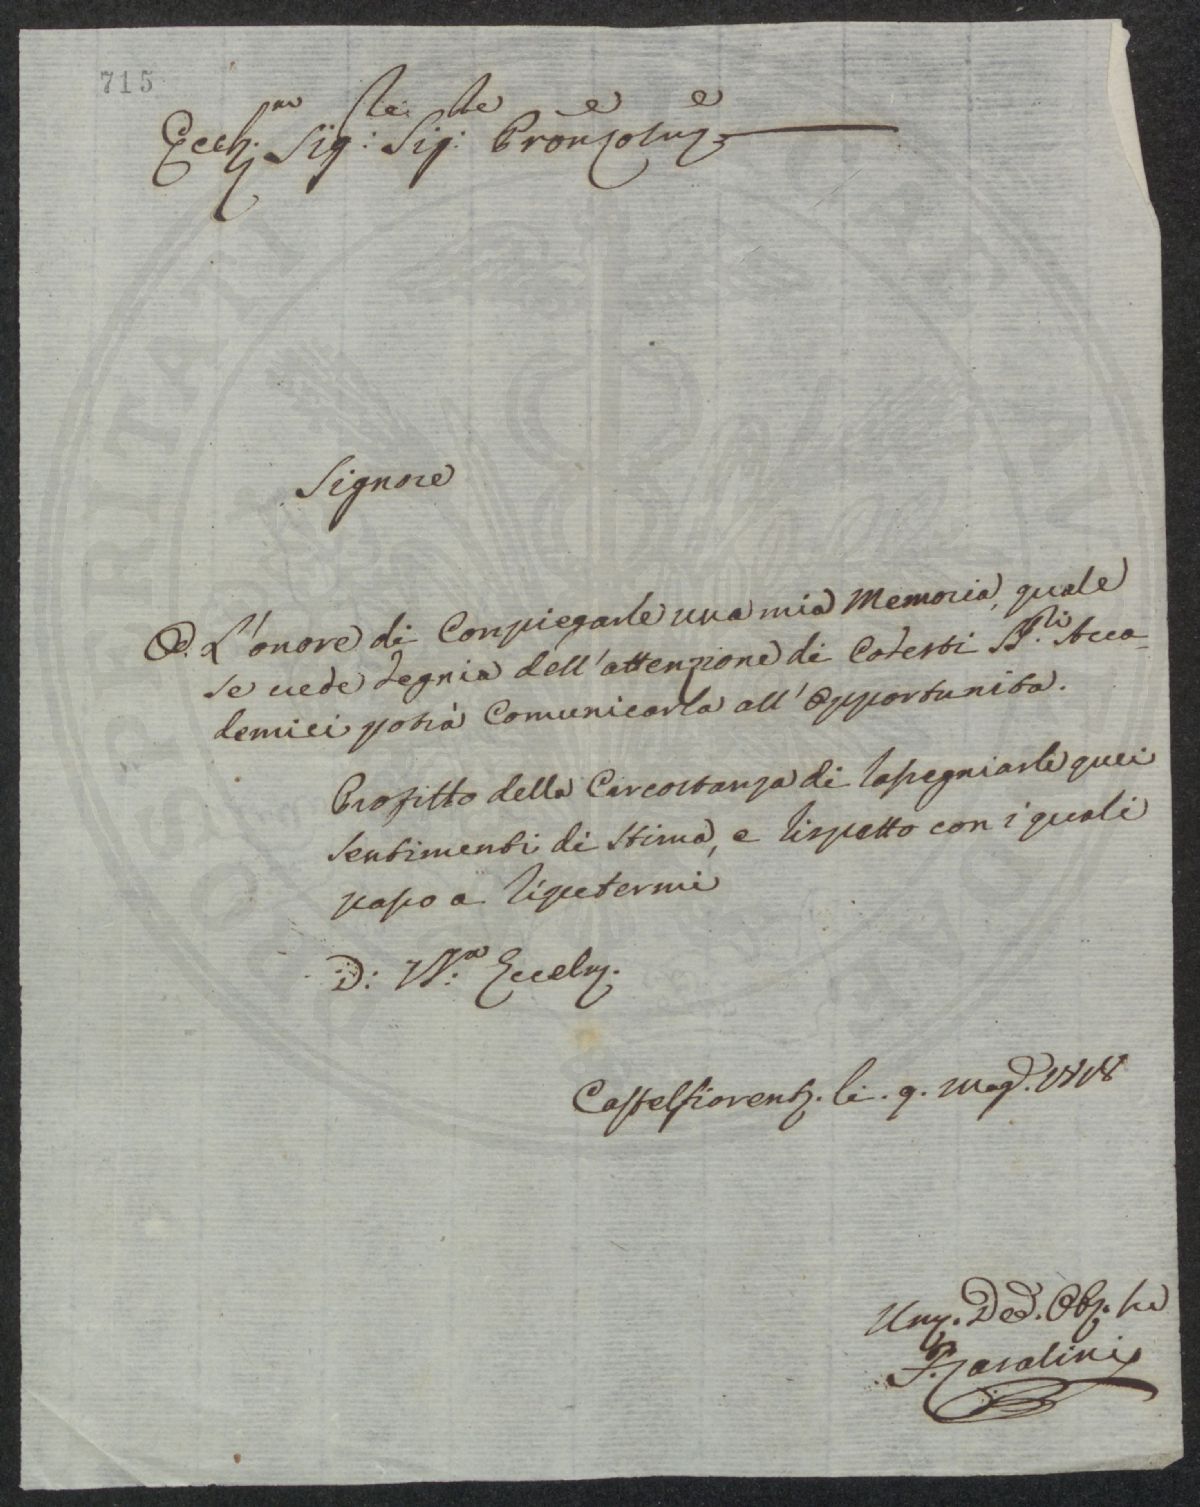 715
Signore
O. L'onore di Compiegarle una mia Memoria, quale
se crede degnia dell'attenzione di Codesti SS.ri Acca-
demici potrà Comunicarla all'Opportunita.
Profitto della Circostanza di rassegniarle quei
sentimenti di Stima, e rispetto con i quali
passo a ripetermi
D: VS.ra Eccelm.
Castelfiorent. li. 9. Mag. 1818
Um. Dev. Obb. se